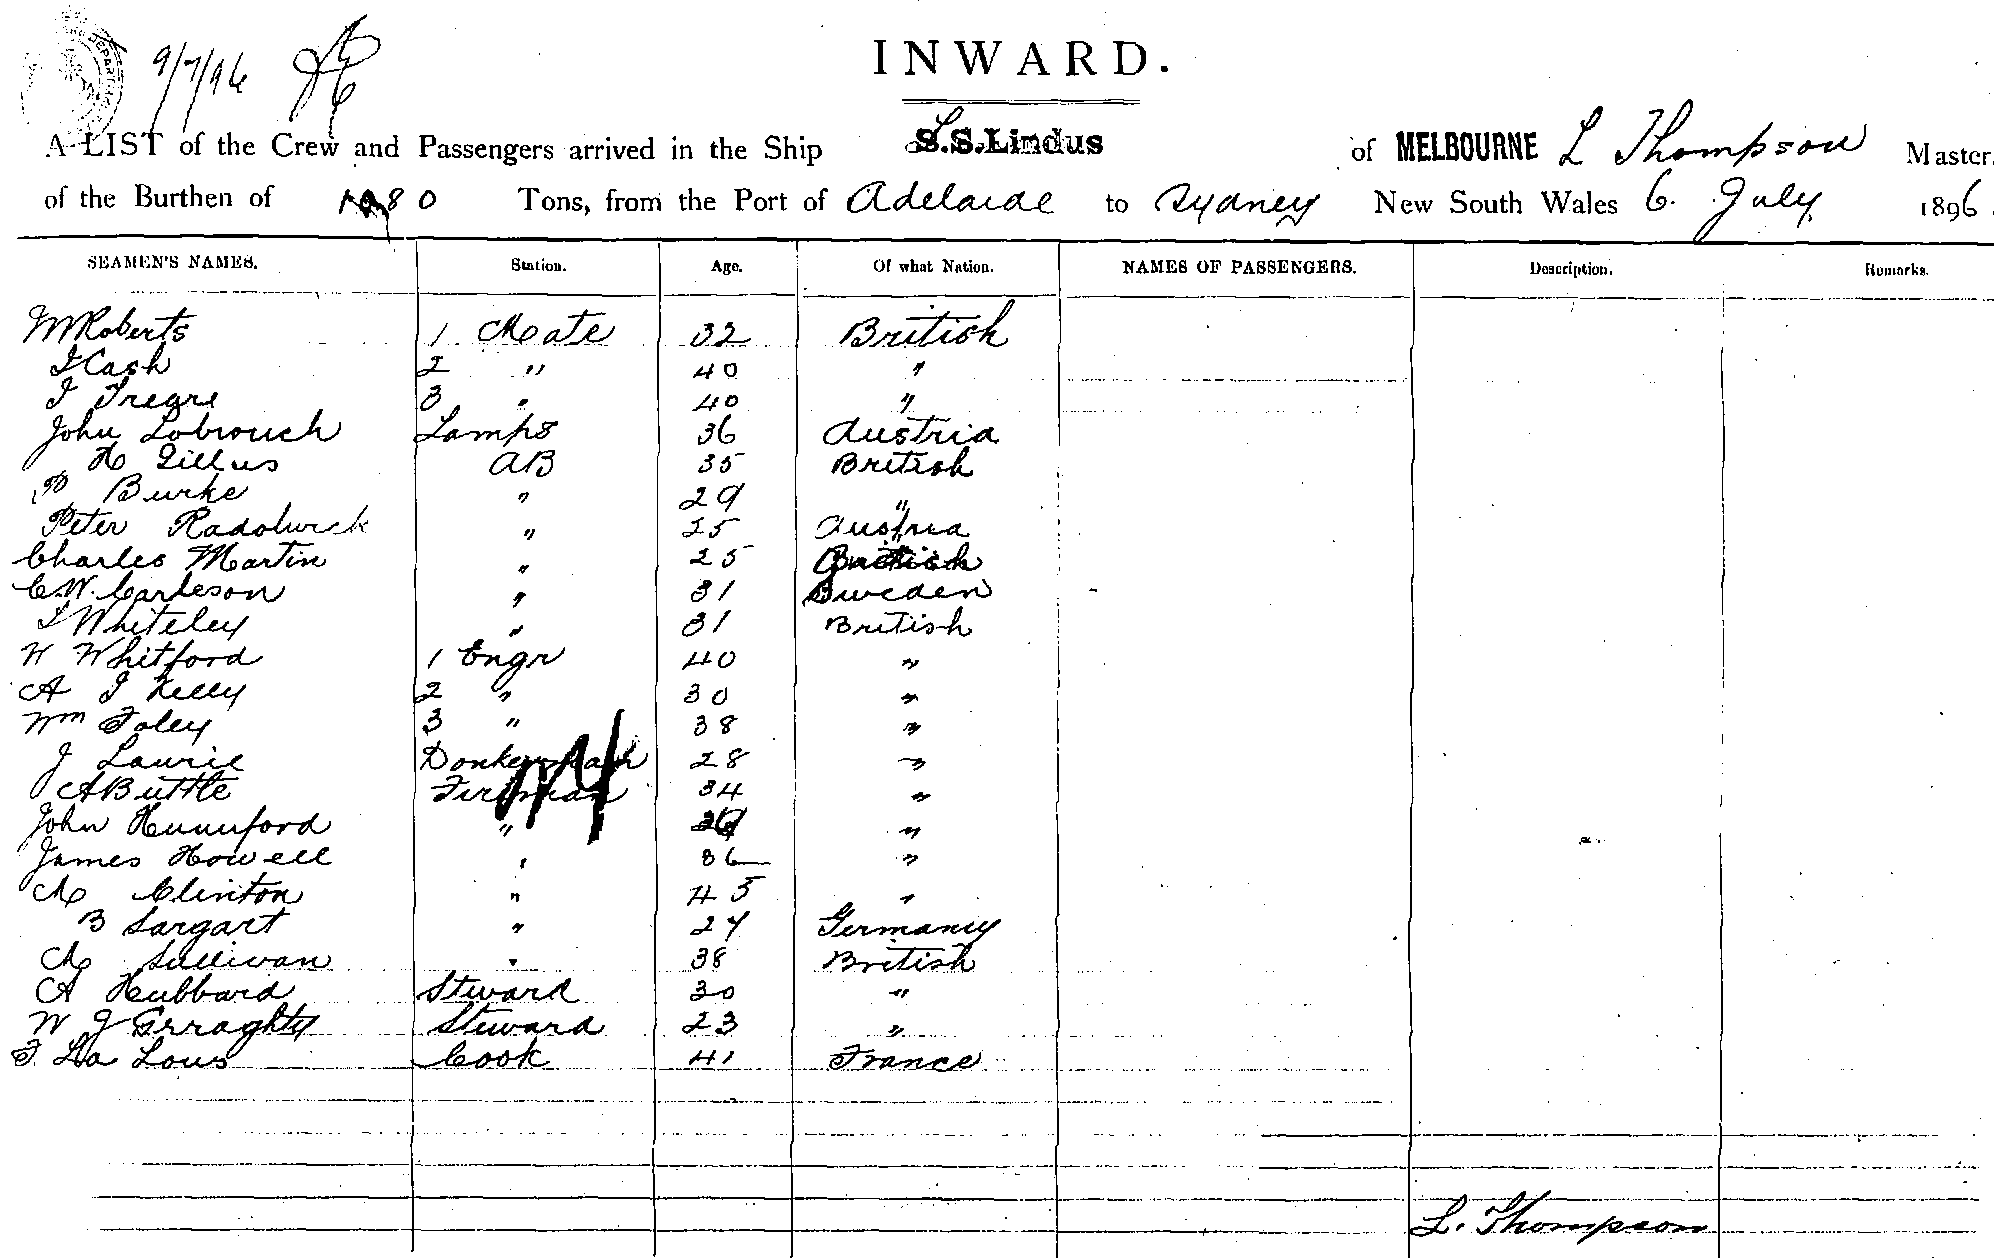 9/7/96
INWARD.
A LIST of the Crew and Passengers arrived in the Ship S.S. Lindus of MELBOURNE L Thompson Master,
of the Burthen of Tons, from the Port of Adelaide to Sydney New South Wales 6. July 1896.
SEAMEN'S NAMES. Station. Age. Of what Nation. NAMES OF PASSENGERS. Description. Remarks.
M Roberts 1 Mate 32 British
Cash 2 " 40 "
3 " 40 "
John Lobrouch Lamps 36 Austria
H Gillus AB 35 British
Burke " 29 "
Peter " 25 Austria
Charles Martin " 25 British
C.W. Carleson " 31 Sweden
Whiteley " 31 British
W Whitford 1 Engr 40 "
A J Kelly 2 " 30 "
Wm Foley 3 " 38 "
J Laurie 28 "
A Buttle Fireman 34 "
John "  "
James Howell " 36 "
M Clinton " 45 "
B Sargart " 24 Germany
M Sullivan " 38 British
A Hubbard Steward 30 "
W J Erraghty Steward 23 "
F La Lous Cook 41 France
L. Thompson